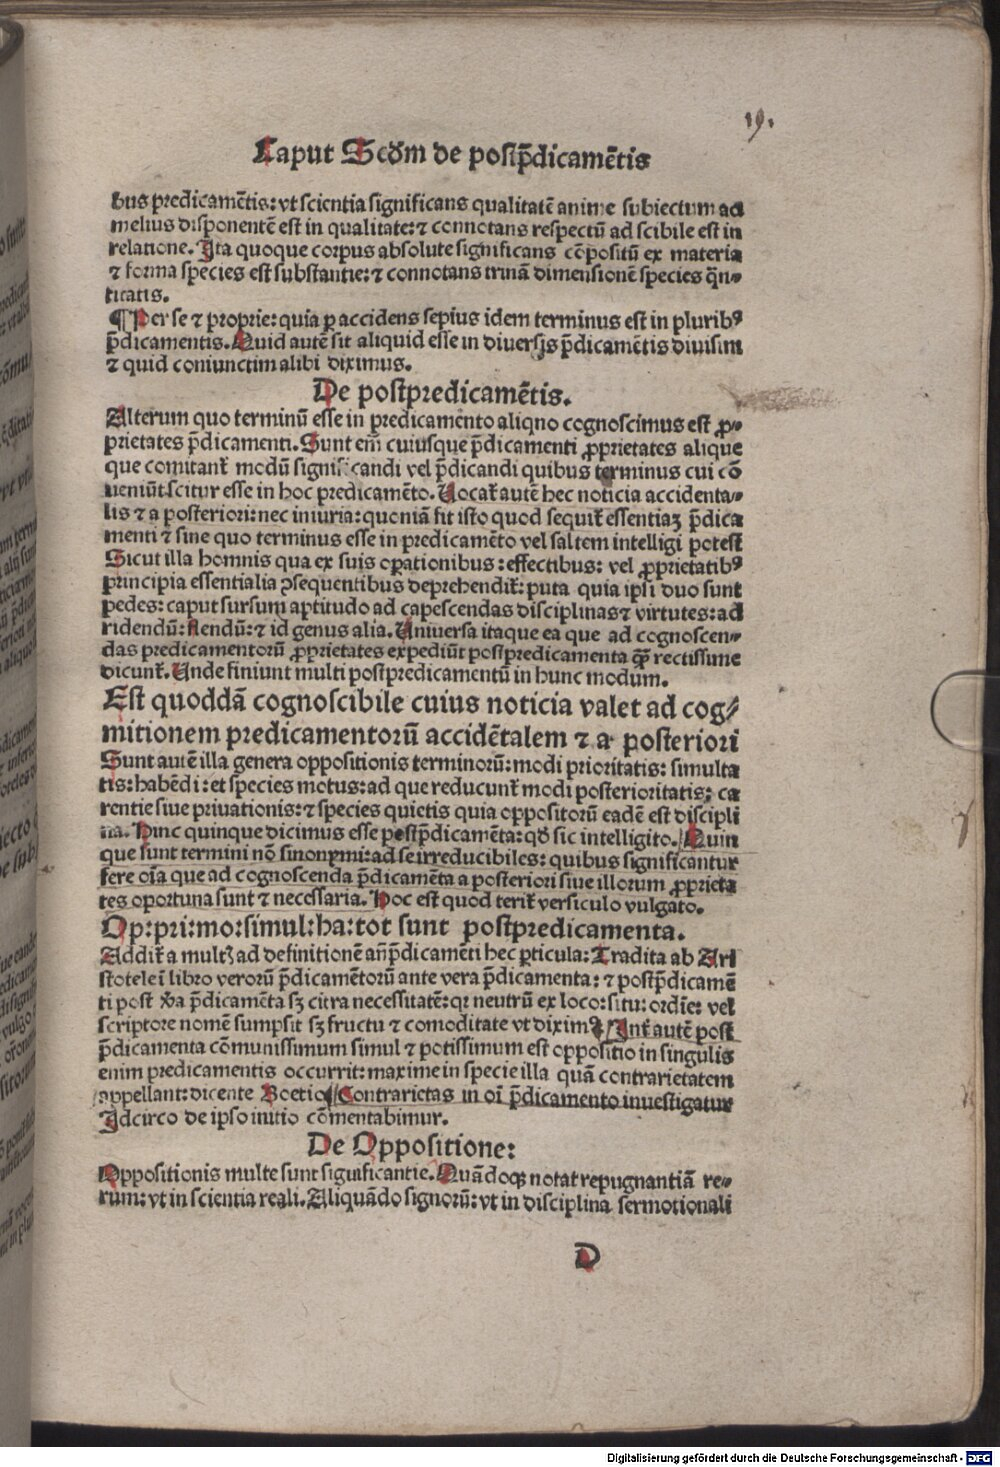 19.
Caput Scd̄m de postp̄dicamētis
bus predicamētis: vt scientia significans qualitatē anime subiectum ad
melius disponentē est in qualitate: ⁊ connotans respectū ad scibile est in
relatione. Ita quoque corpus absolute significans cōpositū ex materia
⁊ forma species est substantie: ⁊ connotans trinā dimensionē species q̄n⸗
titatis.
¶ Per se ⁊ proprie: quia ꝑ accidens sepius idem terminus est in pluribꝰ
p̄dicamentis. Quid autē sit aliquid esse in diuersis p̄dicamētis diuisim
⁊ quid coniunctim alibi diximus.
De postpredicamētis.
Alterum quo terminū esse in predicamento aliqno cognoscimus est ꝓ⸗
prietates p̄dicamenti. Sunt em̄ cuiusque p̄dicamenti ꝓprietates alique
que comitant᷑ modū significandi vel p̄dicandi quibus terminus cui cō
ueniūt scitur esse in hoc predicamēto. Uocat᷑ autē hec noticia accidenta⸗
lis ⁊ a posteriori: nec iniuria: quoniā fit isto quod sequit᷑ essentiaꝫ p̄dica
menti ⁊ sine quo terminus esse in predicamēto vel saltem intelligi potest
Sicut illa homnis qua ex suis oꝑationibus: effectibus: vel ꝓprietatibꝰ
principia essentialia ꝯsequentibus deprehendit᷑: puta quia ipsi duo sunt
pedes: caput sursum aptitudo ad capescendas disciplinas ⁊ virtutes: ad
ridendū: flendū: ⁊ id genus alia. Uniuersa itaque ea que ad cognoscen⸗
das predicamentorū ꝓprietates expediūt postpredicamenta q̄ꝫ rectissime
dicunt᷑. Unde finiunt multi postpredicamentū in hunc modum.
Est quoddā cognoscibile cuius noticia valet ad cog⸗
mitionem predicamentorū accidētalem ⁊ a posteriori
Sunt autē illa genera oppositionis terminorū: modi prioritatis: simulta
tis: habēdi: et species motus: ad que reducunt᷑ modi posterioritatis: ca
rentie siue priuationis: ⁊ species quietis quia oppositorū eadē est discipli
na. Hinc quinque dicimus esse postp̄dicamēta: qd̄ sic intelligito. Quin
que sunt termini nō sinonymi: ad se irreducibiles: quibus significantur
fere oīa que ad cognoscenda p̄dicamēta a posteriori siue illorum ꝓprieta
tes oportuna sunt ⁊ necessaria. Hoc est quod terit᷑ versiculo vulgato.
Op: pri: mo: simul: ha: tot sunt postpredicamenta.
Addit᷑ a multꝭ ad definitionē an̄p̄dicamēti hec ꝑticula: Tradita ab Ari
stotele ī libro verorū p̄dicamētorū ante vera p̄dicamenta: ⁊ postp̄dicamē
ti post v̄a p̄dicamēta sꝫ citra necessitatē: qr neutrū ex loco: situ: ordīe: vel
scriptore nomē sumpsit sꝫ fructu ⁊ comoditate vt diximꝰ. Int᷑ autē post
p̄dicamenta cōmunissimum simul ⁊ potissimum est oppositio in singulis
enim predicamentis occurrit: maxime in specie illa quā contrarietatem
appellant: dicente Boetio Contrarietas in oī p̄dicamento inuestigatur
Idcirco de ipso initio cōmentabimur.
De Oppositione:
Oppositionis multe sunt significantie. Quādoqꝫ notat repugnantiā re⸗
rum: vt in scientia reali. Aliquādo signorū: vt in disciplina sermotionali
D
Digitalisierung gefördert durch die Deutsche Forschungsgemeinschaft - DFG